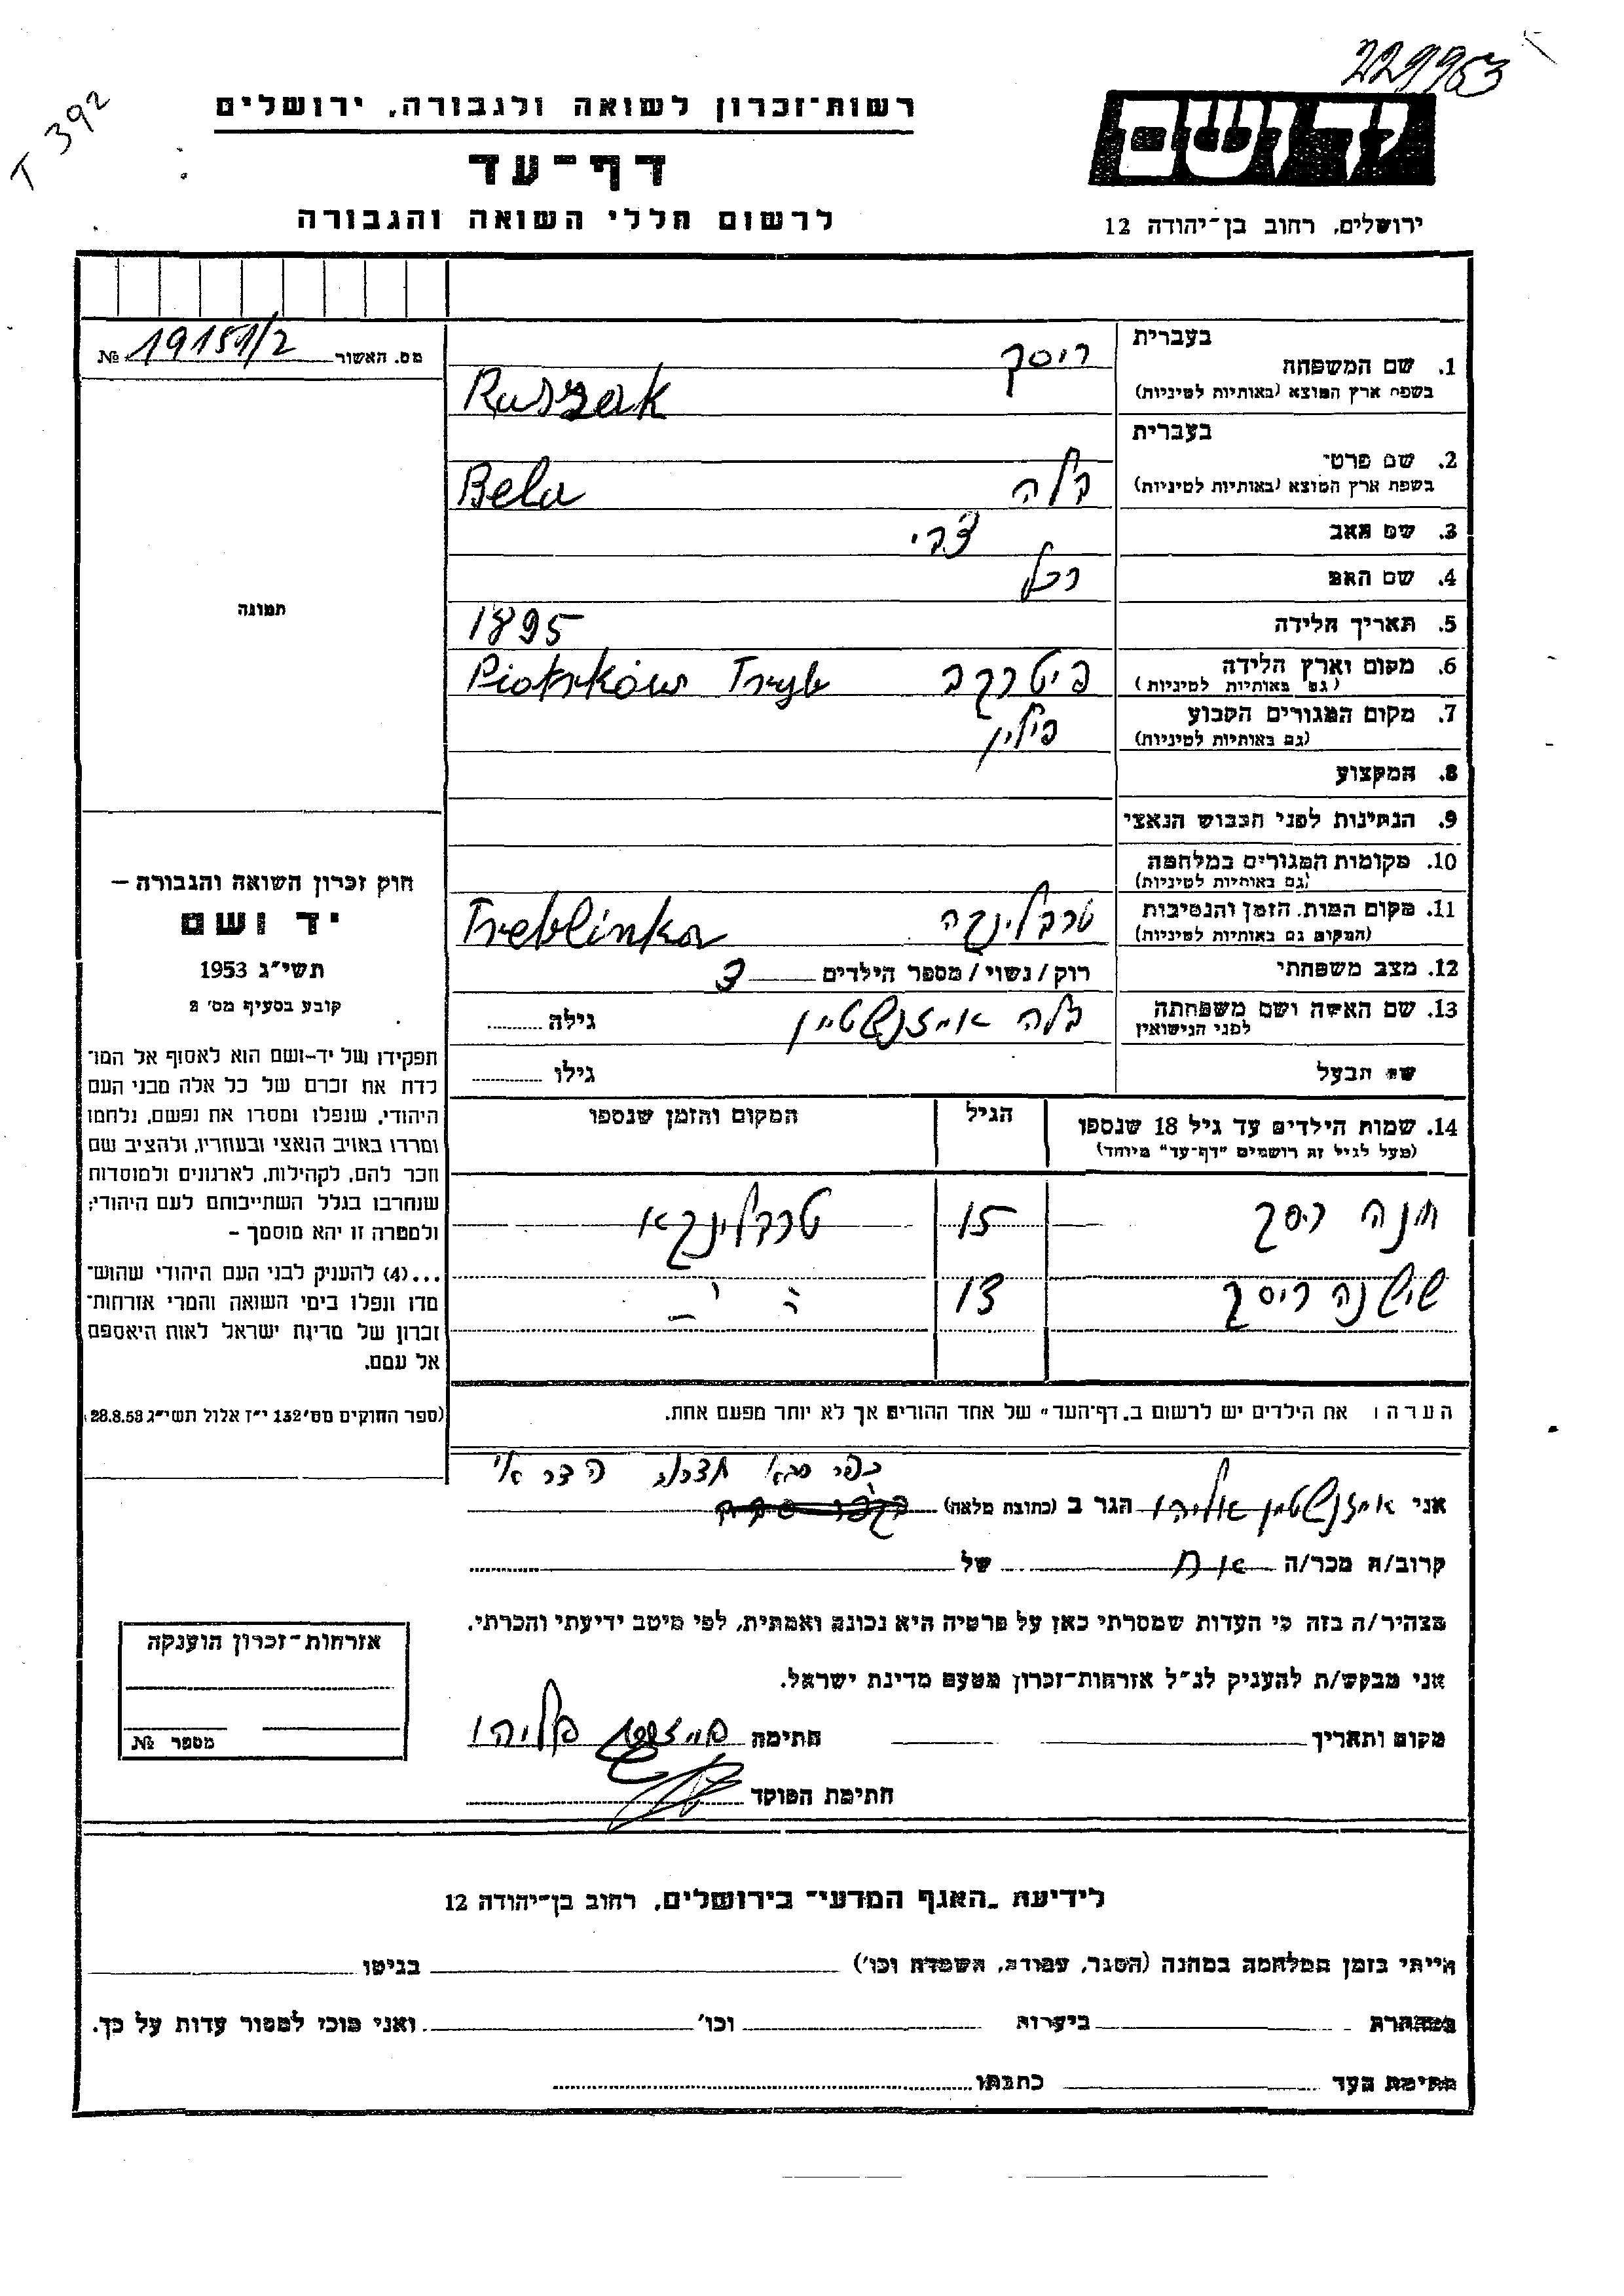 229953
T 392
רשות־זכרון לשואה ולגבורה, ירושלים
יד ושם
דף־עד
לרשום חללי השואה והגבורה
ירושלים, רחוב בן־יהודה 12
מס. האשור 19151/2 №
בעברית
1. שם המשפחה ריסק
בשפת ארץ המוצא (באותיות לטיניות) Ruszak
בעברית
2. שם פרטי
בשפת ארץ המוצא (באותיות לטיניות) בלה Bela
3. שם האב צבי
4. שם האם רכל
5. תאריך הלידה 1895
6. מקום וארץ הלידה פיטרקב Piotrków Tryb
(גם באותיות לטיניות)
7. מקום המגורים הקבוע פולין
(גם באותיות לטיניות)
8. המקצוע
9. הנתינות לפני הכבוש הנאצי
10. מקומות המגורים במלחמה
(גם באותיות לטיניות)
11. מקום המות, הזמן והנסיבות טרבלינקה Treblinka
(המקום גם באותיות לטיניות)
12. מצב משפחתי רוק / נשוי / מספר הילדים 3
13. שם האשה ושם משפחתה לפני הנישואין בלה אייזנשטיין גילה
שם הבעל גילו
תמונה
חוק זכרון השואה והגבורה –
יד ושם
תשי״ג 1953
קובע בסעיף מס׳ 2
תפקידו של יד־ושם הוא לאסוף אל המו־
לדת את זכרם של כל אלה מבני העם
היהודי, שנפלו ומסרו את נפשם, נלחמו
ומרדו באויב הנאצי ובעוזריו, ולהציב שם
וזכר להם, לקהילות, לארגונים ולמוסדות
שנחרבו בגלל השתייכותם לעם היהודי;
ולמטרה זו יהא מוסמך –
...(4) להעניק לבני העם היהודי שהוש־
מדו ונפלו בימי השואה והמרי אזרחות־
זכרון של מדינת ישראל לאות היאספם
אל עמם.
(ספר החוקים מס׳ 132 י״ז אלול תשי״ג 28.8.53)
14. שמות הילדים עד גיל 18 שנספו הגיל המקום והזמן שנספו
(מעל לגיל זה רושמים "דף־עד" מיוחד)
חנה ריסק 15 טרבלינקא
שושנה ריסק 13
הערה: את הילדים יש לרשום ב„דף־העד" של אחד ההורים אך לא יותר מפעם אחת.
כפר סבא
אני אייזנשטיין אליהו הגר ב (כתובת מלאה)
קרוב/ה מכר/ה אח של
מצהיר/ה בזה כי העדות שמסרתי כאן על פרטיה היא נכונה ואמתית, לפי מיטב ידיעתי והכרתי.
אני מבקש/ת להעניק לנ״ל אזרחות־זכרון מטעם מדינת ישראל.
מקום ותאריך חתימה
חתימת הפוקד
אזרחות־זכרון הוענקה
מספר №
לידיעת „האגף המדעי" בירושלים, רחוב בן־יהודה 12
הייתי בזמן המלחמה במחנה (הסגר, עבודה, השמדה וכו׳) בגיטו
במחתרת ביערות וכו׳ ואני מוכן למסור עדות על כך.
חתימת העד כתבתו